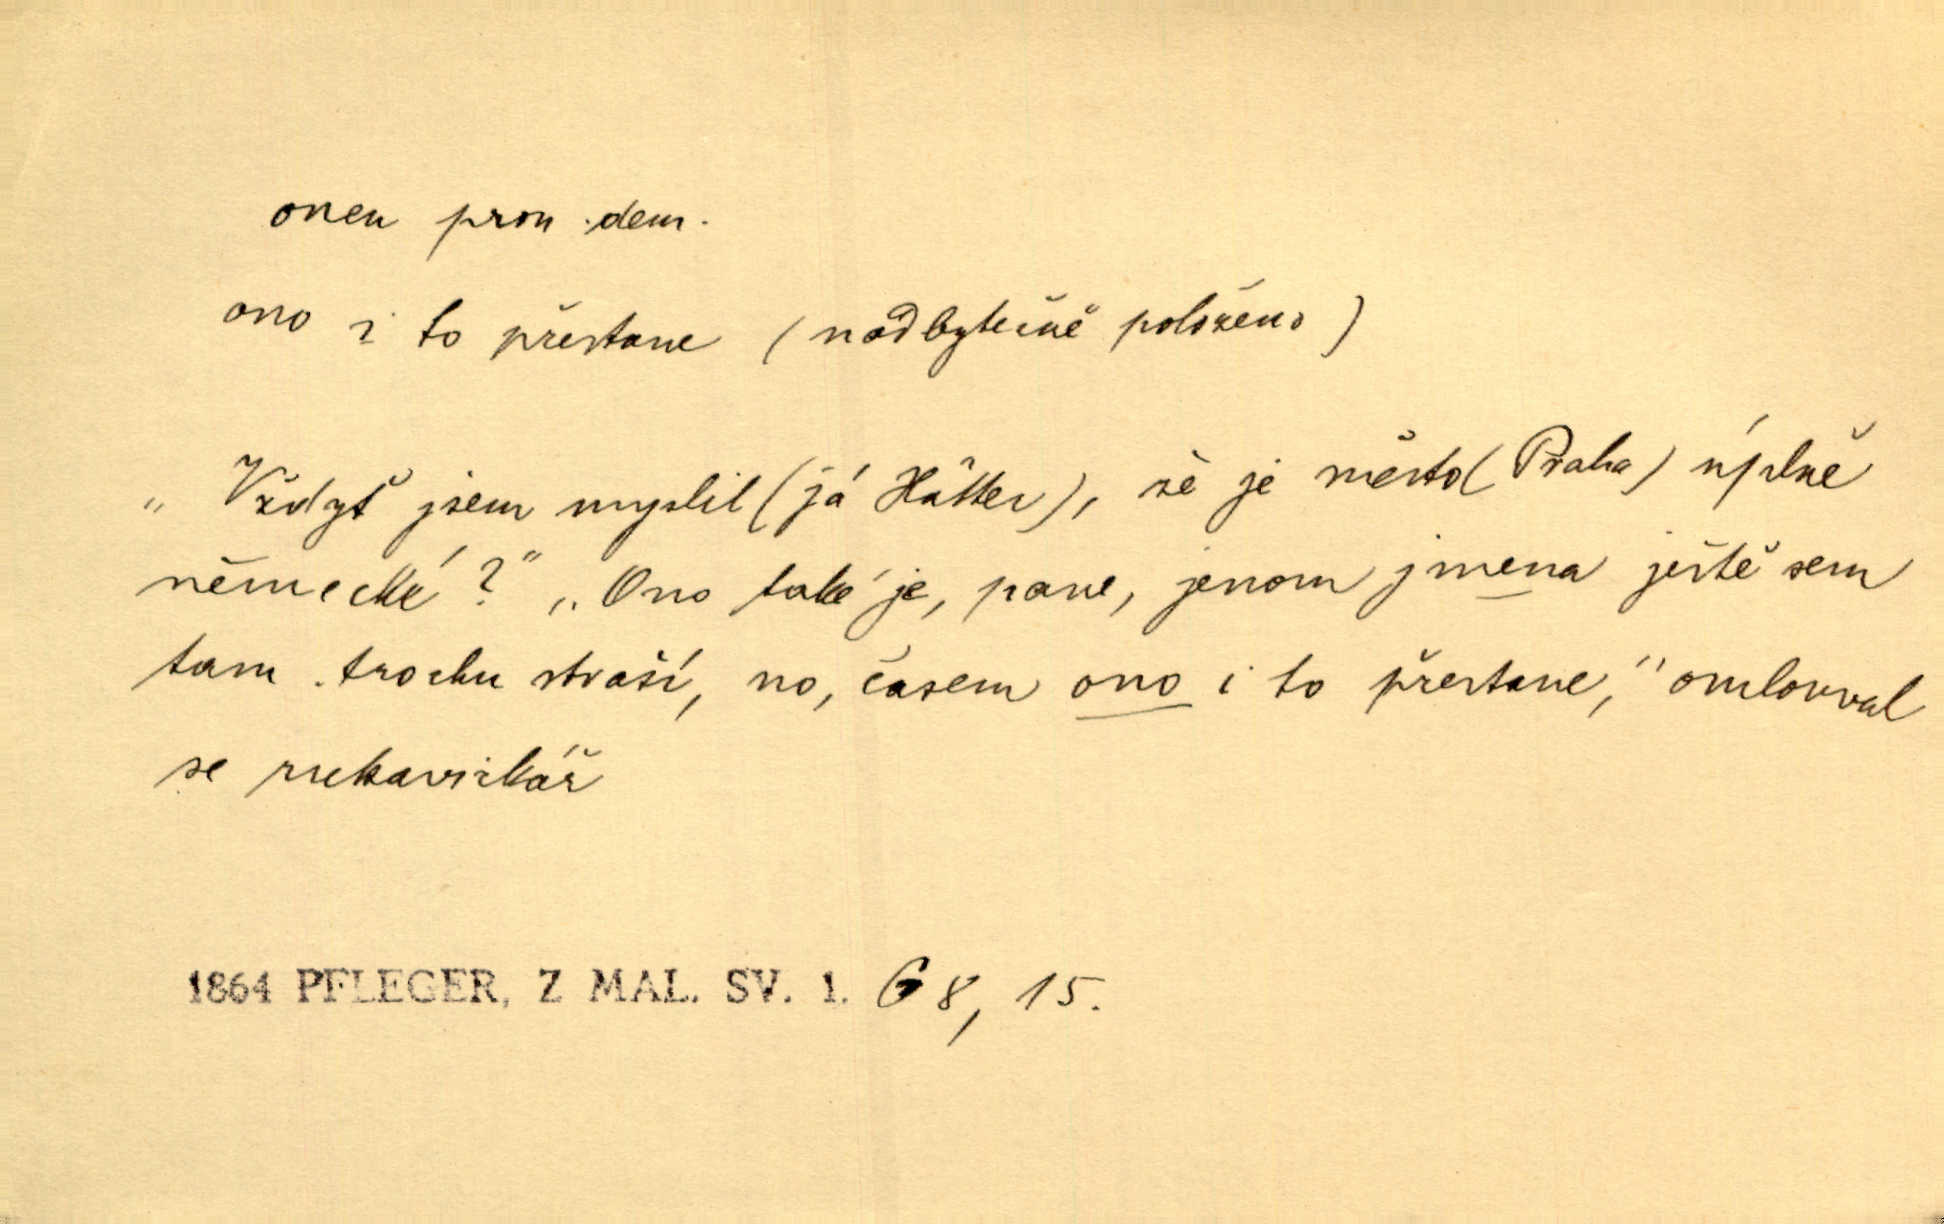 onen pron. dem.
ono i to přestane (nadbytečně položeno)
„Vždyť jsem myslil (já Hätter), že je město (Praha) úplně
německé?" „Ono také je, pane, jenom jmena ještě sem
tam trochu straší, no, časem ono i to přestane," omlouval
se rukavičkář
1864 PFLEGER, Z MAL. SV. 1. 68, 15.